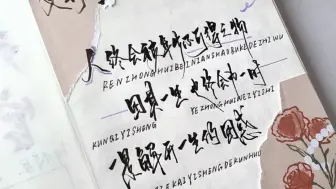 人终会被年少不可得之物
RENZHONGHUIBEINIANSHAOBUKEDEZHIWU
困其一生 也终会 一时
KUNQIYISHENG YEZHONGHUI YISHI
一 解开一生的困惑
JIEKAIYISHENGDEKUNHUO